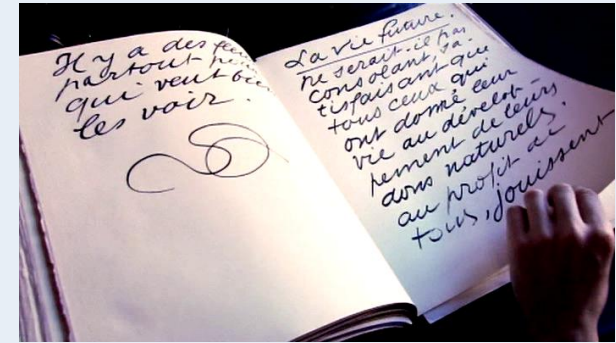 Il y a des fleurs
partout pour
qui veut bien
les voir.
La vie future.
ne serait-il pas
consolant, sa-
tisfaisant que
tous ceux qui
ont donné leur
vie au dévelop-
pement de leurs
dons naturels,
au profit de
tous, jouissent